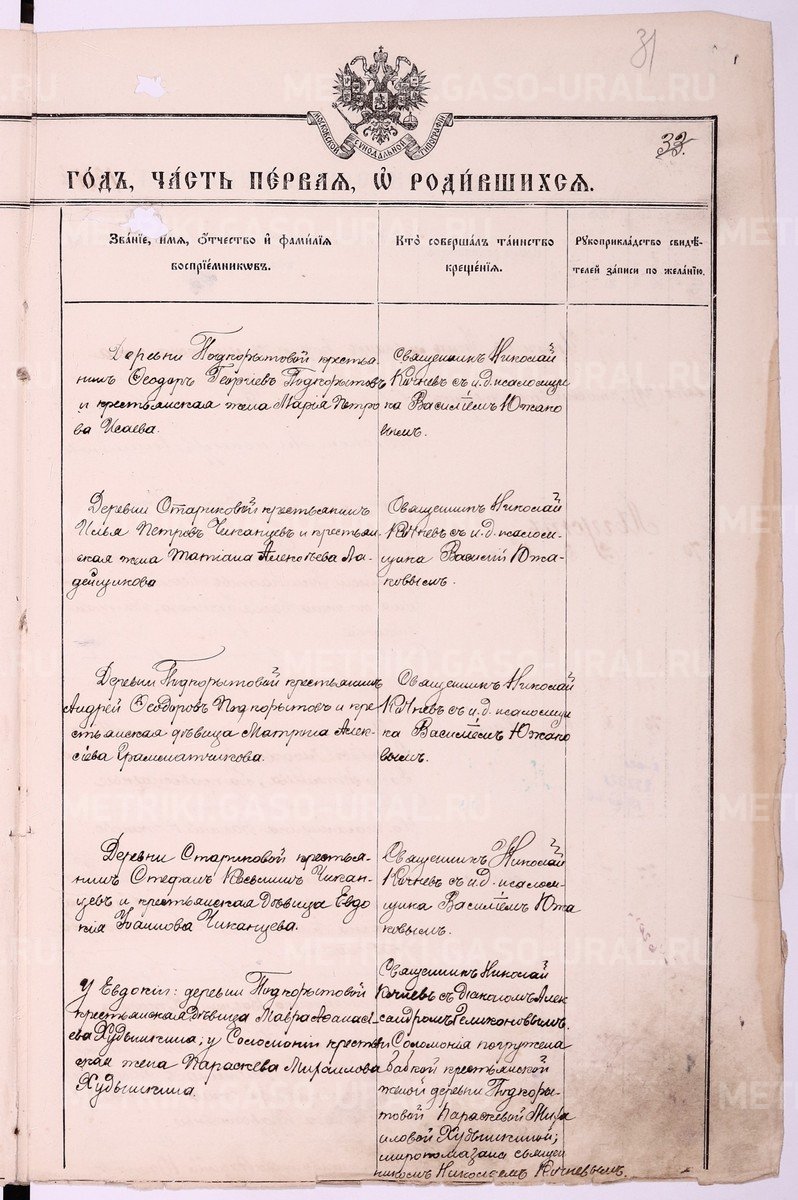 31
33.
МОСКОВСКОЙ СѴНОДАЛЬНОЙ ТИПОГРАФІИ
ГО́ДЪ, ЧА́СТЬ ПЕ́РВАЯ, Ѽ РОДИ́ВШИХСЯ.
Зва́нїе, и́мя, ѻ҆́тчество и҆ фами́лїя
воспрїе́мникѡвъ.
Кто̀ соверша́лъ та́инство
креще́нїѧ.
Рꙋкоприкла́дство свидѣ́-
телей за́писи по жела́нїю.
Деревни Подкорытовой крестья-
нинъ Ѳеодоръ Георгіевъ Подкорытовъ
и крестьянская жена Марія Петро
ва Исаева.
Священникъ Николай
Кочневъ съ и.д. псаломщи
ка Василіемъ Южако
вымъ.
Деревни Стариковой крестьянинъ
Илья Петровъ Чиканцевъ и крестьян
ская жена Татіана Алексѣева Ла-
дейщикова
Священникъ Николай
Кочневъ съ и.д. псалом-
щика Василій Южа-
ковымъ.
Деревни Подкорытовой крестьянинъ
Андрей Ѳеодоровъ Подкорытовъ и кре
стьянская дѣвица Матрона Алек-
сіева Грамматчикова.
Священникъ Николай
Кочневъ съ и.д. псаломщи
ка Василіемъ Южако
вымъ.
Деревни Стариковой крестья-
нинъ Стефанъ Косьминъ Чикан-
цевъ и крестьянская дѣвица Евдо
кія Іоаннова Чиканцева.
Священникъ Николай
Кочневъ съ и.д. псалом-
щика Василіемъ Южа
ковымъ.
У Евдокіи: деревни Подкорытовой
крестьянская дѣвица Мавра Аѳанасі-
ева Худышкина; у Соломоніи крестьян
ская жена Параскева Михаилова
Худышкина.
Священникъ Николай
Кочневъ съ Діакономъ Алек
сандромъ Геликоновымъ.
Соломонія погружена
бабкой крестьянской
женой деревни Подкоры-
товой Параскевой Миха
иловой Худышкиной;
миропомазана священ
никомъ Николаемъ Кочневымъ.
METRIKI.GASO-URAL.RU